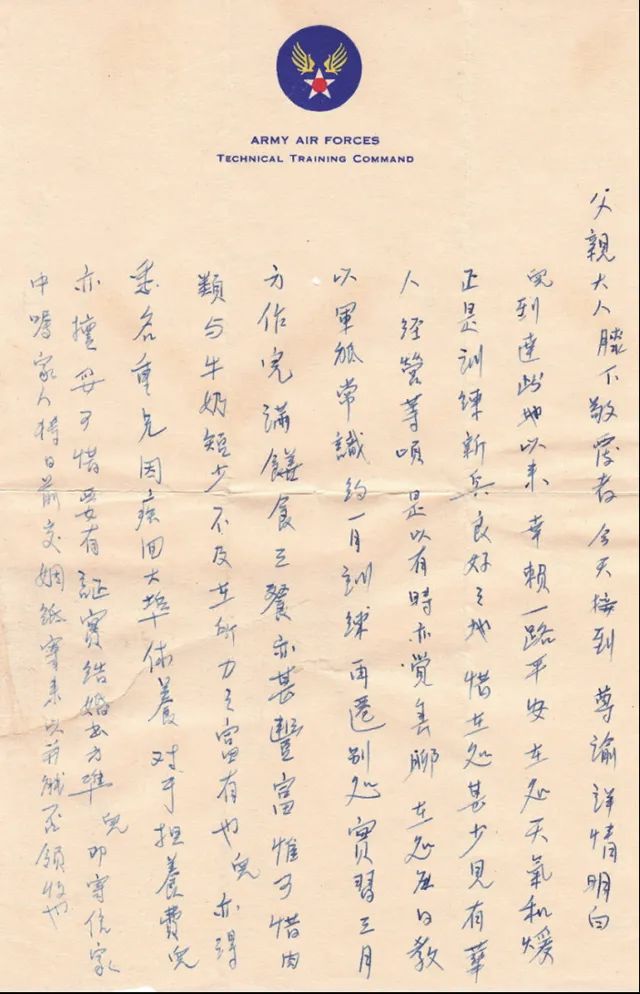 ARMY AIR FORCES
TECHNICAL TRAINING COMMAND
父親大人膝下敬禀者今天接到尊諭詳情明白
兒到達此地以來幸賴一路平安在处天氣和煖
正是訓練新兵良好之地惜在处甚少見有華
人經營等項是以有時亦覺無聊在处每日教
以軍祗常識約一月訓練再遷別处實習三月
方作完滿饍食之餐亦甚豐富惟可惜肉
類与牛奶短少不及在所力之富有也兒亦得
悉名重兄因疾回大埠休養对于担養費兒
亦擅妥可惜要有証實結婚书方準兒即寄信家
中嘱家人将日前交婚紙寄來以前能否領收也